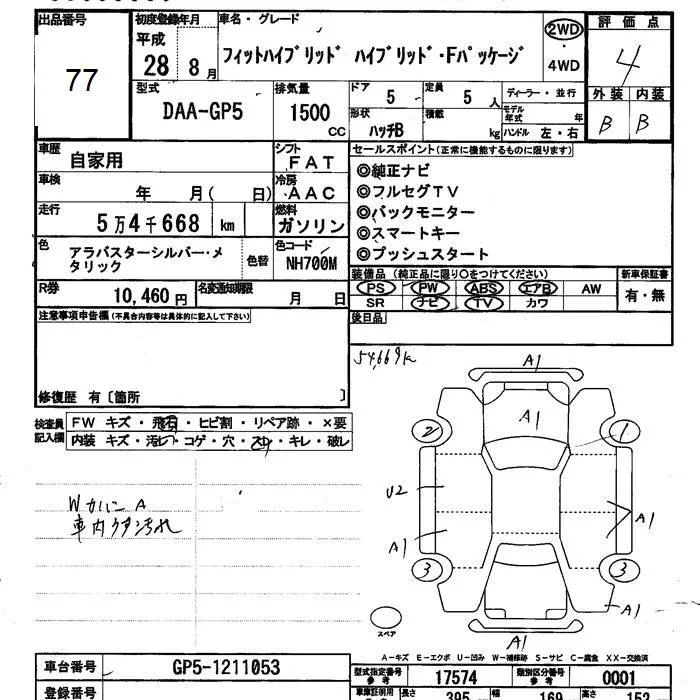 出品番号
77
初度登録年月
平成
28 8月
車名・グレード
フィットハイブリッド ハイブリッド・Fパッケージ
2WD
・
4WD
評価点
4
外装 内装
B B
型式
DAA-GP5
排気量
1500
CC
ドア
5
定員
5 人
ディーラー・並行
形状
ハッチB
積載
kg
モデル年式
年
ハンドル 左・右
車歴
自家用
シフト
FAT
車検
年 月( 日)
冷房
AAC
走行
5万4千668 km
燃料
ガソリン
色
アラバスターシルバー・メタリック
色替
色コード
NH700M
R券
10,460円
名変通知期限
月 日
セールスポイント(正常に機能するものに限ります)
◎純正ナビ
◎フルセグTV
◎バックモニター
◎スマートキー
◎プッシュスタート
装備品 (純正品に限り○をつけてください)
新車保証書
PS PW ABS エアB AW
SR ナビ TV カワ
有・無
後日品
注意事項申告欄(不具合内容等は具体的に記入して下さい)
修復歴 有〔箇所 〕
検査員記入欄
FW キズ・飛石・ヒビ割・リペア跡・×要
内装 キズ・汚レ・コゲ・穴・スレ・キレ・破レ
54,669k
A1
A1
2
1
U2
A1
A1
3
3
A1
A1
スペア
車内 汚れ
A-キズ E-エクボ U-凹み W-補修跡 S-サビ C-腐食 XX-交換済
車台番号
GP5-1211053
登録番号
型式指定番号
参考
17574
類別区分番号
参考
0001
車庫証明用
長さ
395
幅
169
高さ
152